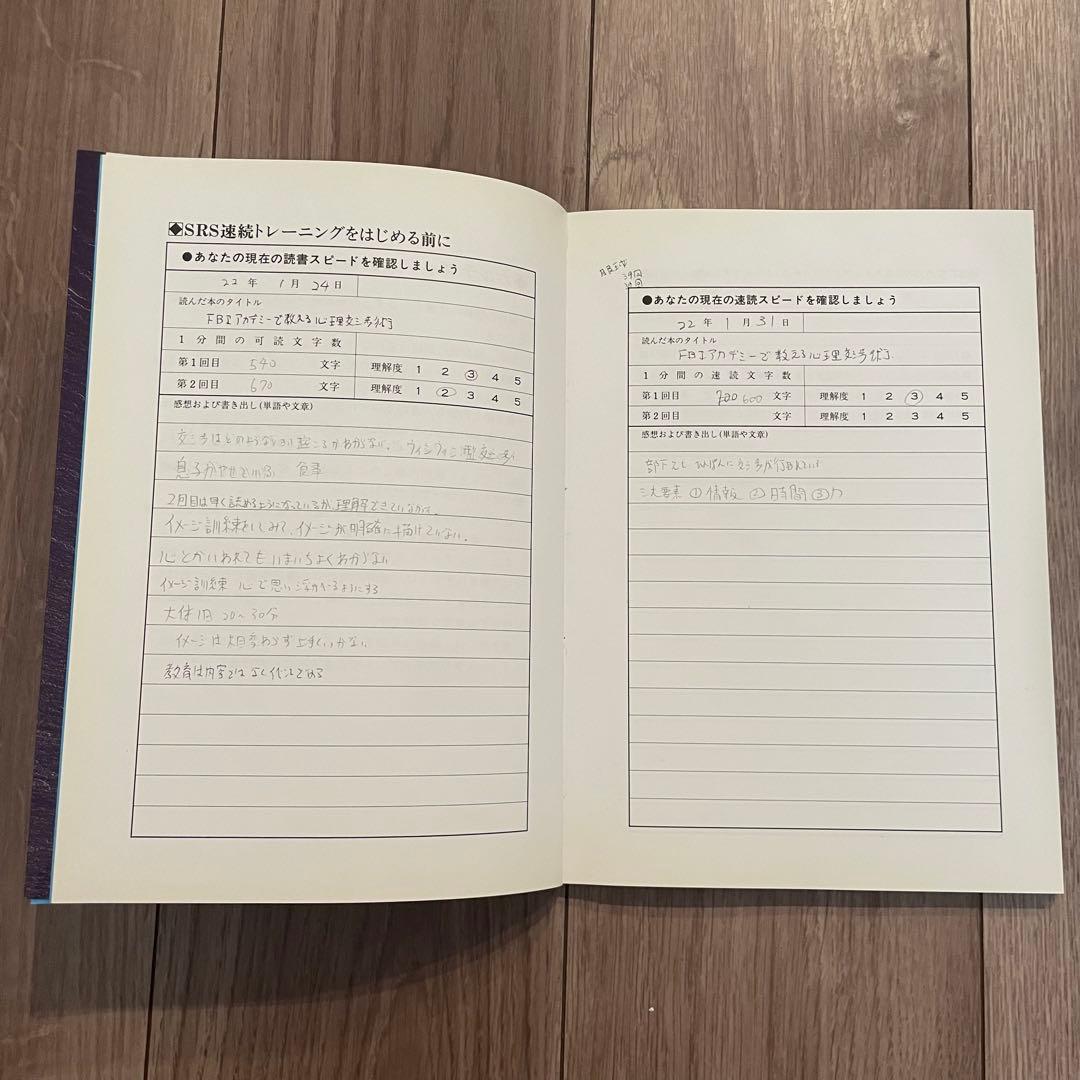 ◆SRS速続トレーニングをはじめる前に
●あなたの現在の読書スピードを確認しましょう
22年 1月 24日
読んだ本のタイトル
FBIアカデミーで教える心理交渉術
1分間の可読文字数
第1回目 540 文字 理解度 1 2 3 4 5
第2回目 670 文字 理解度 1 2 3 4 5
感想および書き出し(単語や文章)
交渉はどのような 起こるかわからない。 ウィンウィン型交渉
息子がやせている 食事
2回目は早く読めるようになっているが、理解できていなかった。
イメージ訓練をしてみて、イメージが明確に描けていない。
心とかいわれてもいまいちよくわからない
イメージ訓練 心で思い浮かべるようにする
大体1日 20〜30分
イメージは相変わらず上手くいかない
教育は内容ではなく
39回
●あなたの現在の速読スピードを確認しましょう
22年 1月 31日
読んだ本のタイトル
FBIアカデミーで教える心理交渉術
1分間の速読文字数
第1回目 600 文字 理解度 1 2 3 4 5
第2回目 文字 理解度 1 2 3 4 5
感想および書き出し(単語や文章)
部下でも ひんぱんに交渉が行われている
三大要素 ①情報 ②時間 ③力